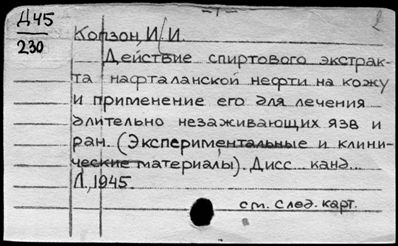 Д45
230
Копзон, И. И.
Действие спиртового экстрак-
та нафталанской нефти на кожу
и применение его для лечения
длительно незаживающих язв и
ран. (Экспериментальные и клини-
ческие материалы). Дисс... канд...
Л., 1945.
см. след. карт.